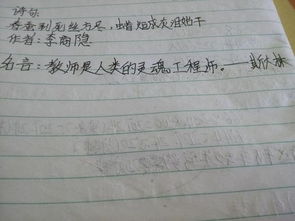 诗句
春蚕到死丝方尽，蜡炬成灰泪始干
作者：李商隐
名言：教师是人类的灵魂工程师。——斯大林